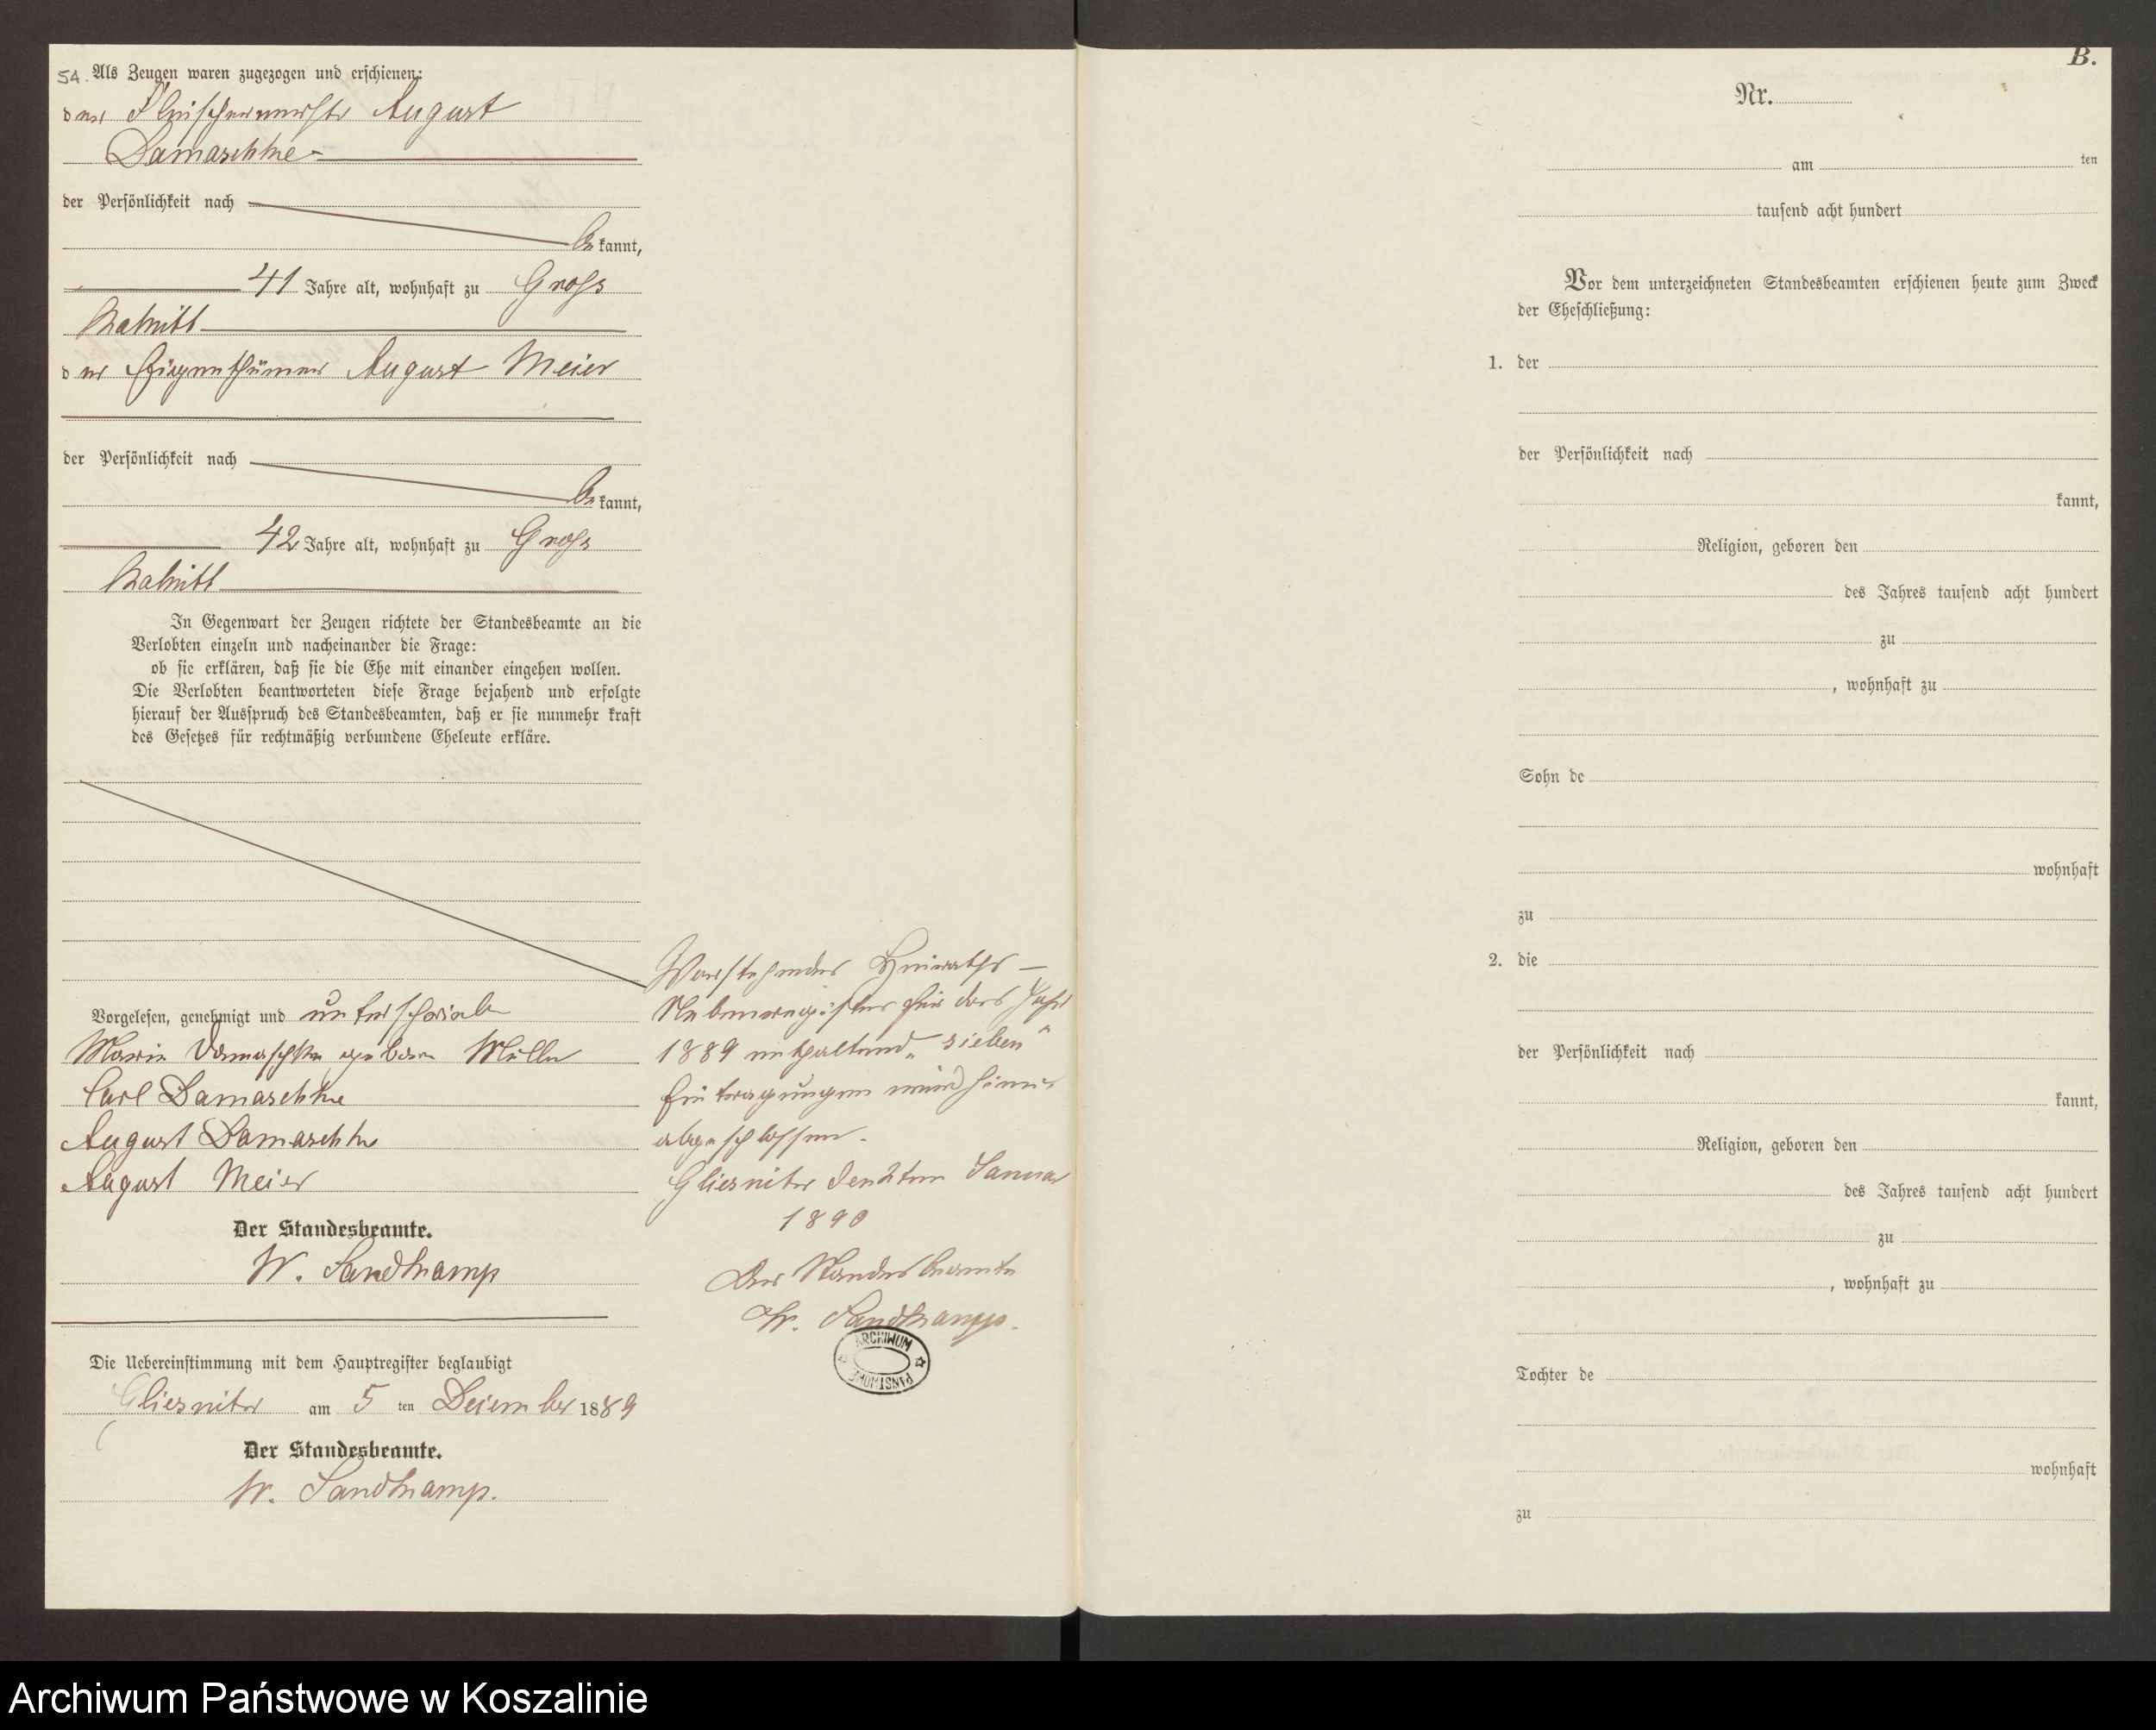 54. Als Zeugen waren zugezogen und erschienen:
der Fleischermeister August
Damaschke
der Persönlichkeit nach
bekannt,
41 Jahre alt, wohnhaft zu Gross
Katnitt
der Eigenthümer August Meier
der Persönlichkeit nach
bekannt,
42 Jahre alt, wohnhaft zu Gross
Katnitt
In Gegenwart der Zeugen richtete der Standesbeamte an die
Verlobten einzeln und nacheinander die Frage:
ob sie erklären, daß sie die Ehe mit einander eingehen wollen.
Die Verlobten beantworteten diese Frage bejahend und erfolgte
hierauf der Ausspruch des Standesbeamten, daß er sie nunmehr kraft
des Gesetzes für rechtmäßig verbundene Eheleute erkläre.
Vorgelesen, genehmigt und unterschrieben
Marie Damaschke geboren Müller
Carl Damaschke
August Damaschke
August Meier
Der Standesbeamte.
W. Sandkamp
Die Uebereinstimmung mit dem Hauptregister beglaubigt
Gliesnitz am 5 ten Dezember 1889
Der Standesbeamte.
W. Sandkamp.
Vorstehendes Heiraths-
Nebenregister für das Jahr
1889 enthaltend „sieben“
Eintragungen wird hiermit
abgeschlossen.
Gliesnitz den 2ten Januar
1890
Der Standesbeamte
W. Sandkamp.
ARCHIWUM
PAŃSTWOWE
B.
Nr.
am ten
tausend acht hundert
Vor dem unterzeichneten Standesbeamten erschienen heute zum Zweck
der Eheschließung:
1. der
der Persönlichkeit nach
kannt,
Religion, geboren den
des Jahres tausend acht hundert
zu
, wohnhaft zu
Sohn de
wohnhaft
zu
2. die
der Persönlichkeit nach
kannt,
Religion, geboren den
des Jahres tausend acht hundert
zu
, wohnhaft zu
Tochter de
wohnhaft
zu
Archiwum Państwowe w Koszalinie